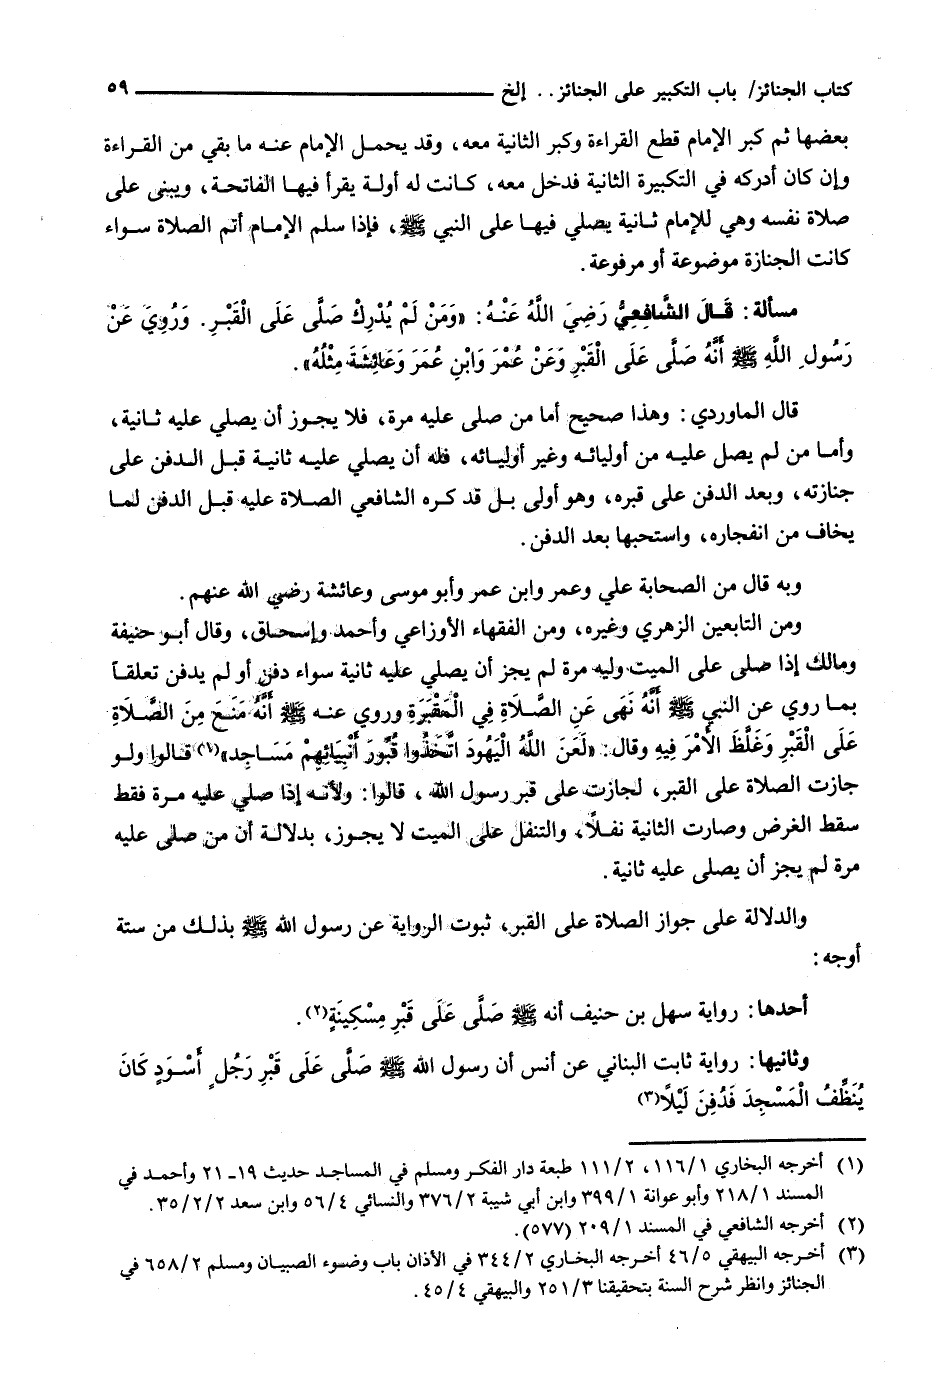 كتاب الجنائز/ باب التكبير على الجنائز.. إلخ ــــــــــــــــــــ ٥٩
بعضها ثم كبر الإمام قطع القراءة وكبر الثانية معه، وقد يحمل الإمام عنه ما بقي من القراءة
وإن كان أدركه في التكبيرة الثانية فدخل معه، كانت له أولة يقرأ فيها الفاتحة، ويبنى على
صلاة نفسه وهي للإمام ثانية يصلي فيها على النبي ﷺ، فإذا سلم الإمام أتم الصلاة سواء
كانت الجنازة موضوعة أو مرفوعة.
مسألة: قَالَ الشَّافِعِيُّ رَضِيَ اللَّهُ عَنْهُ: «وَمَنْ لَمْ يُدْرِكْ صَلَّى عَلَى الْقَبْرِ. وَرُوِيَ عَنْ
رَسُولِ اللَّهِ ﷺ أَنَّهُ صَلَّى عَلَى الْقَبْرِ وَعَنْ عُمَرَ وَابْنِ عُمَرَ وَعَائِشَةَ مِثْلُهُ».
قال الماوردي: وهذا صحيح أما من صلى عليه مرة، فلا يجوز أن يصلي عليه ثانية،
وأما من لم يصل عليه من أوليائه وغير أوليائه، فله أن يصلي عليه ثانية قبل الدفن على
جنازته، وبعد الدفن على قبره، وهو أولى بل قد كره الشافعي الصلاة عليه قبل الدفن لما
يخاف من انفجاره، واستحبها بعد الدفن.
وبه قال من الصحابة علي وعمر وابن عمر وأبو موسى وعائشة رضي الله عنهم.
ومن التابعين الزهري وغيره، ومن الفقهاء الأوزاعي وأحمد وإسحاق، وقال أبو حنيفة
ومالك إذا صلى على الميت وليه مرة لم يجز أن يصلي عليه ثانية سواء دفن أو لم يدفن تعلقاً
بما روي عن النبي ﷺ أَنَّهُ نَهَى عَنِ الصَّلَاةِ فِي الْمَقْبَرَةِ وروي عنه ﷺ أَنَّهُ مَنَعَ مِنَ الصَّلَاةِ
عَلَى الْقَبْرِ وَغَلَّظَ الأَمْرَ فِيهِ وقال: «لَعَنَ اللَّهُ الْيَهُودَ اتَّخَذُوا قُبُورَ أَنْبِيَائِهِمْ مَسَاجِد»(١) قالوا ولو
جازت الصلاة على القبر، لجازت على قبر رسول الله ، قالوا: ولأنه إذا صلي عليه مرة فقط
سقط الغرض وصارت الثانية نفلاً، والتنفل على الميت لا يجوز، بدلالة أن من صلى عليه
مرة لم يجز أن يصلى عليه ثانية.
والدلالة على جواز الصلاة على القبر، ثبوت الرواية عن رسول الله ﷺ بذلك من ستة
أوجه:
أحدها: رواية سهل بن حنيف أنه ﷺ صَلَّى عَلَى قَبْرِ مِسْكِينَةٍ(٢).
وثانيها: رواية ثابت البناني عن أنس أن رسول الله ﷺ صَلَّى عَلَى قَبْرِ رَجُلٍ أَسْوَدٍ كَانَ
يُنَظِّفُ الْمَسْجِدَ فَدُفِنَ لَيْلًا(٣)
(١) أخرجه البخاري ١١٦/١، ١١١/٢ طبعة دار الفكر ومسلم في المساجد حديث ١٩ـ ٢١ وأحمد في
المسند ٢١٨/١ وأبو عوانة ٣٩٩/١ وابن أبي شيبة ٣٧٦/٢ والنسائي ٥٦/٤ وابن سعد ٣٥/٢/٢.
(٢) أخرجه الشافعي في المسند ٢٠٩/١ (٥٧٧).
(٣) أخرجه البيهقي ٤٦/٥ أخرجه البخاري ٣٤٤/٢ في الأذان باب وضوء الصبيان ومسلم ٦٥٨/٢ في
الجنائز وانظر شرح السنة بتحقيقنا ٢٥١/٣ والبيهقي ٤٥/٤.